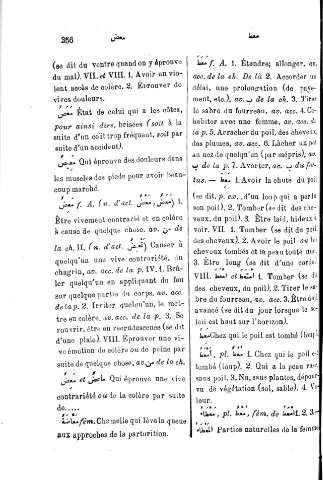 356
معض
معط
(se dit du ventre quand on y éprouve
du mal). VII. et VIII. 1. Avoir un vio-
lent accès de colère. 2. Éprouver de
vives douleurs.
État de celui qui a les côtes,
pour ainsi dire, brisées (soit à la
suite d'un coït trop fréquent, soit par
suite d'un accident).
Qui éprouve des douleurs dans
les muscles des pieds pour avoir beau-
coup marché.
معض f. A. (n. d'act.
1.
Être vivement contrarié et en colère
à cause de quelque chose, av. من de
la ch. II. (n. d'act.
Causer à
quelqu'un une vive contrariété, du
chagrin, av. acc. de la p. IV. 1. Brû-
ler quelqu'un en appliquant du feu
sur quelque partie du corps, av. acc.
de la p. 2. Irriter quelqu'un, le met-
tre en colère, av. acc. de la p. 3. Se
rouvrir, être en recrudescence (se dit
d'une plaie). VIII. Éprouver une vi-
ve émotion de colère ou de peine par
suite de quelque chose, av. من de la ch.
Qui éprouve une vive
contrariété ou de la colère par suite
de.....
Chamelle qui lève la queue
aux approches de la parturition.
معط f. A. 1. Étendre; allonger, av.
acc. de la ch. De là 2. Accorder un
délai, une prolongation (de paye-
ment, etc.), av. ب de la ch. 3. Tirer
le sabre du fourreau, av. acc. 4. Co-
habiter avec une femme, av. acc. de
la p. 5. Arracher du poil, des cheveux,
des plumes, av. acc. 6. Lâcher un pet
au nez de quelqu'un (par mépris), av.
ب de la p. 7. Avorter, av. ب du fœ-
tus. — 1. Avoir la chute du poil
(se dit, p. ex., d'un loup qui a perdu
son poil). 2. Tomber (se dit des che-
veux, du poil). 3. Être laid, hideux à
voir. VII. 1. Tomber (se dit du poil,
des cheveux). 2. Avoir le poil ou les
cheveux tombés et la peau toute nue.
3. Être long (se dit d'une corde).
VIII. et 1. Tomber (se dit
des cheveux, du poil). 2. Tirer le sa-
bre du fourreau, av. acc. 3. Être
avancé (se dit du jour lorsque le so-
leil est haut sur l'horizon).
Chez qui le poil est tombé (loup).
pl. 1. Chez qui le poil est
tombé (loup). 2. Qui a la peau rase,
sans poil. 3. Nu, sans plantes, dépour-
vu de végétation (sol, sable). 4. Vo-
leur.
pl. fém. de 1. 2. 3. —
Parties naturelles de la femme